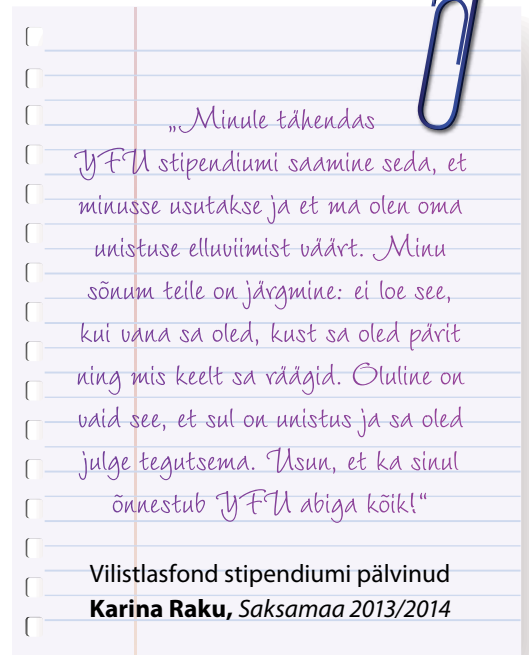 „Minule tähendas
YFU stipendiumi saamine seda, et
minusse usutakse ja et ma olen oma
unistuse elluviimist väärt. Minu
sõnum teile on järgmine: ei loe see,
kui vana sa oled, kust sa oled pärit
ning mis keelt sa räägid. Oluline on
vaid see, et sul on unistus ja sa oled
julge tegutsema. Usun, et ka sinul
õnnestub YFU abiga kõik!“
Vilistlasfond stipendiumi pälvinud
Karina Raku, Saksamaa 2013/2014